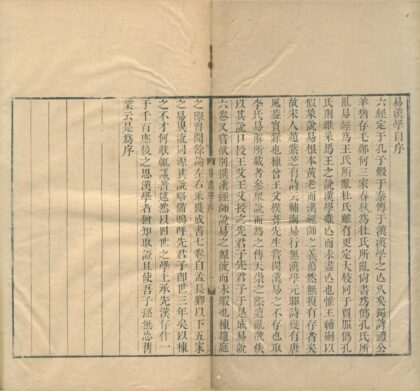 易漢學自序
六經定于孔子燬于秦傳于漢漢學之亾久矣獨詩禮公
羊猶存毛鄭何三家春秋爲杜氏所亂尚書爲僞孔氏所
亂易經爲王氏所亂杜氏雖有更定大校同于賈服僞孔
氏則雜采馬王之說漢學雖亾而未盡亾也惟王輔嗣以
假象說易根本黃老而漢經師之義蕩然無復有存者矣
故宋人趙紫芝有詩云輔嗣易行無漢學元暉詩變有唐
風蓋實錄也棟曾王父樸菴先生嘗閔漢易之不存也取
李氏易解所載者參衆說而爲之傳天崇之際遭亂散佚
以其說口授王父王父授之先君子先君子于是成易說
六卷又嘗欲別撰漢經師說易之源流而未暇也棟趨庭
之際習聞餘論左右采獲成書七卷自孟長卿以下五家
之易異流同源其說略備嗚呼先君子即世三年矣以棟
之不才何敢輒議著述然以四世之學上承先漢存什一
于千百庶後之思漢學者猶知取證且使吾子孫無忘舊
業云是爲序